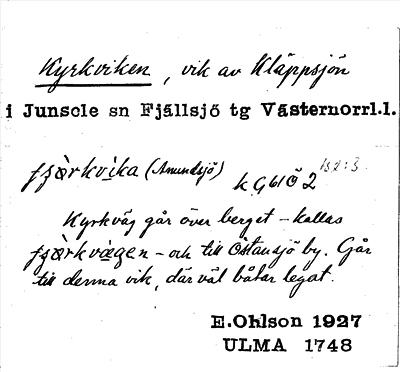 Kyrkviken, vik av Kläppsjön
i Junsele sn Fjällsjö tg Västernorrl.l.
(Amundsjö) kG61Ö2
Kyrkväg går över berget – kallas
– och till Östansjö by. Går
till denna vik, där väl båtar legat.
E.Ohlson 1927
ULMA 1748